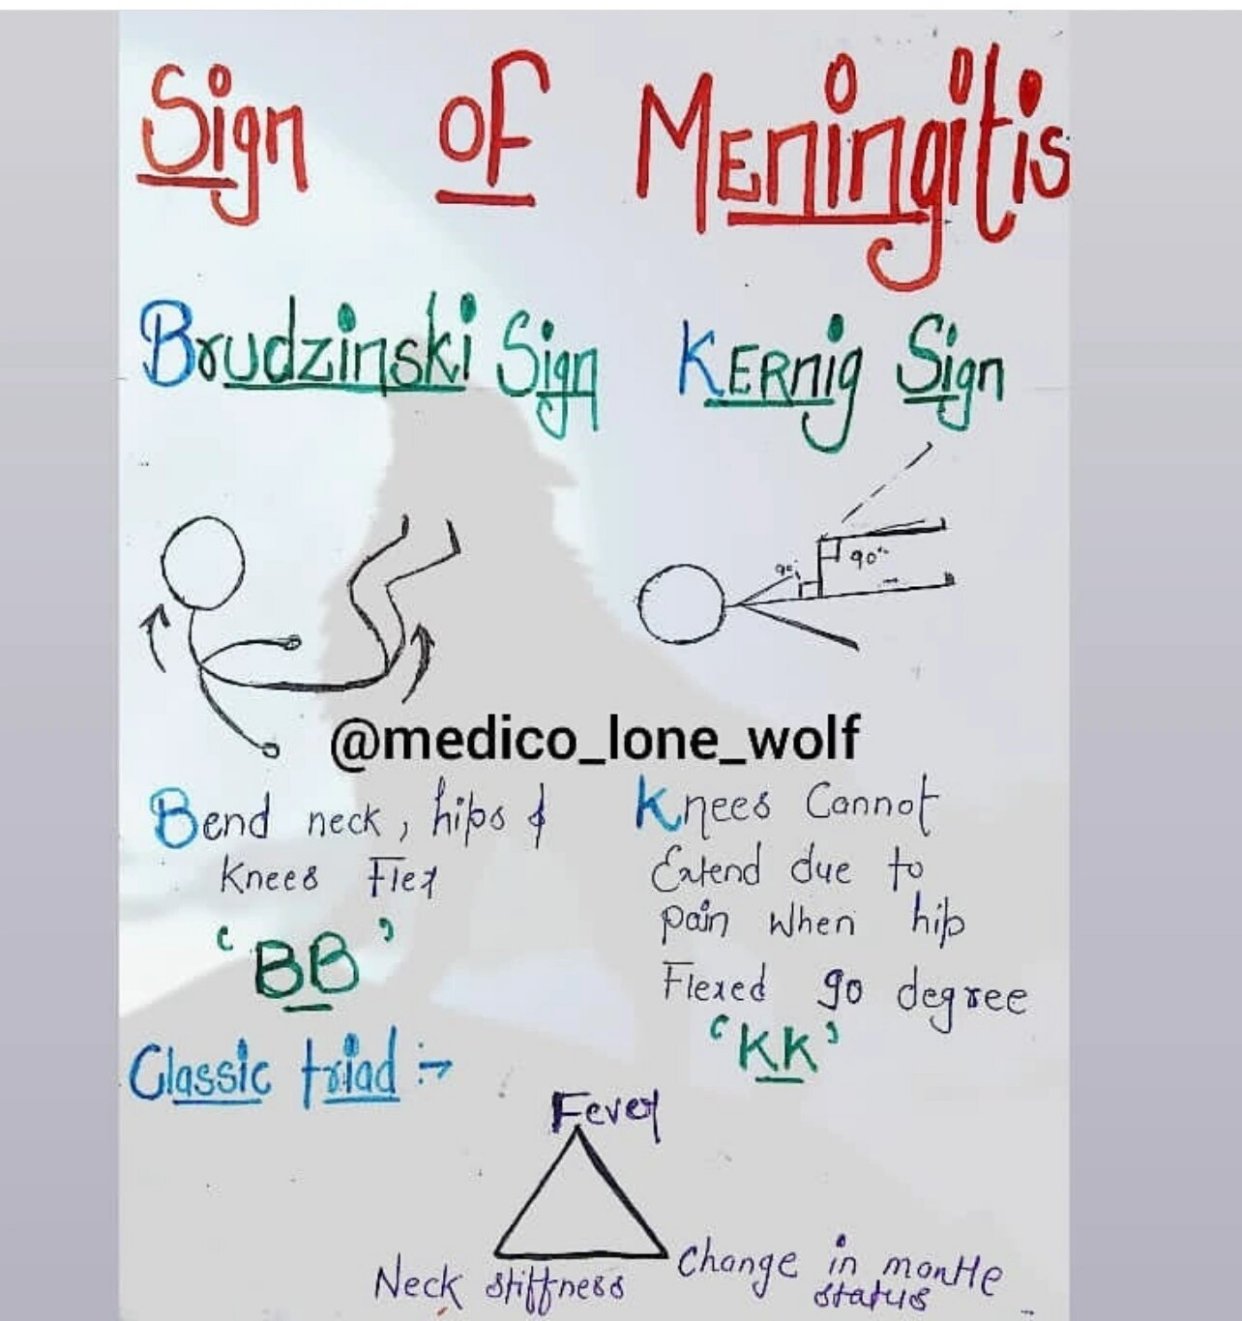 Sign of Meningitis
Brudzinski Sign
Kernig Sign
90°
90°
@medico_lone_wolf
Bend neck, hips &
Knees Flex
'BB'
Knees Cannot
Extend due to
pain when hip
Flexed 90 degree
'KK'
Classic triad :→
Fever
Neck stiffness
Change in montle
status